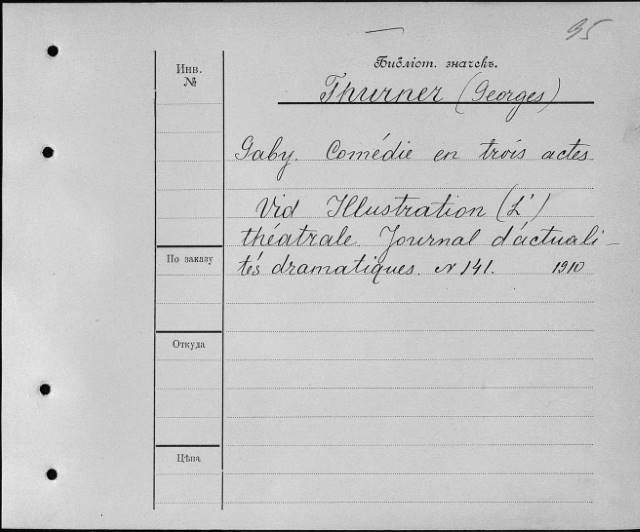 95
Библіот. значекъ.
Инв.
№
Thurner (Georges)
Gaby. Comédie en trois actes
Vid Illustration (L')
théatrale. Journal d'actuali-
tés dramatiques. N 141. 1910
По заказу
Откуда
Цѣна